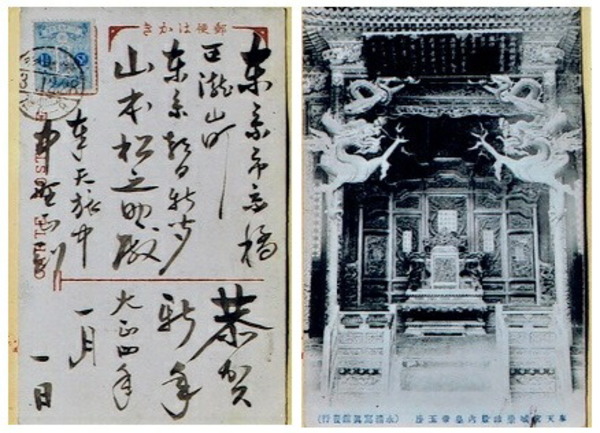 郵便はかき
東京市京橋
区瀧山町
東京朝日新聞
山本松之助殿
奉天旅中
恭賀
新年
大正四年
一月
一日
奉天宮城崇政殿内皇帝玉座